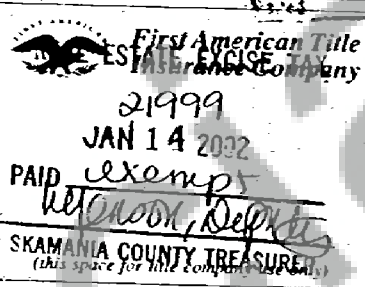 First American Title
Insurance Company
ESTATE EXCISE TAX
21999
JAN 14 2002
PAID exempt
Deputy
SKAMANIA COUNTY TREASURER
(this space for title company use only)